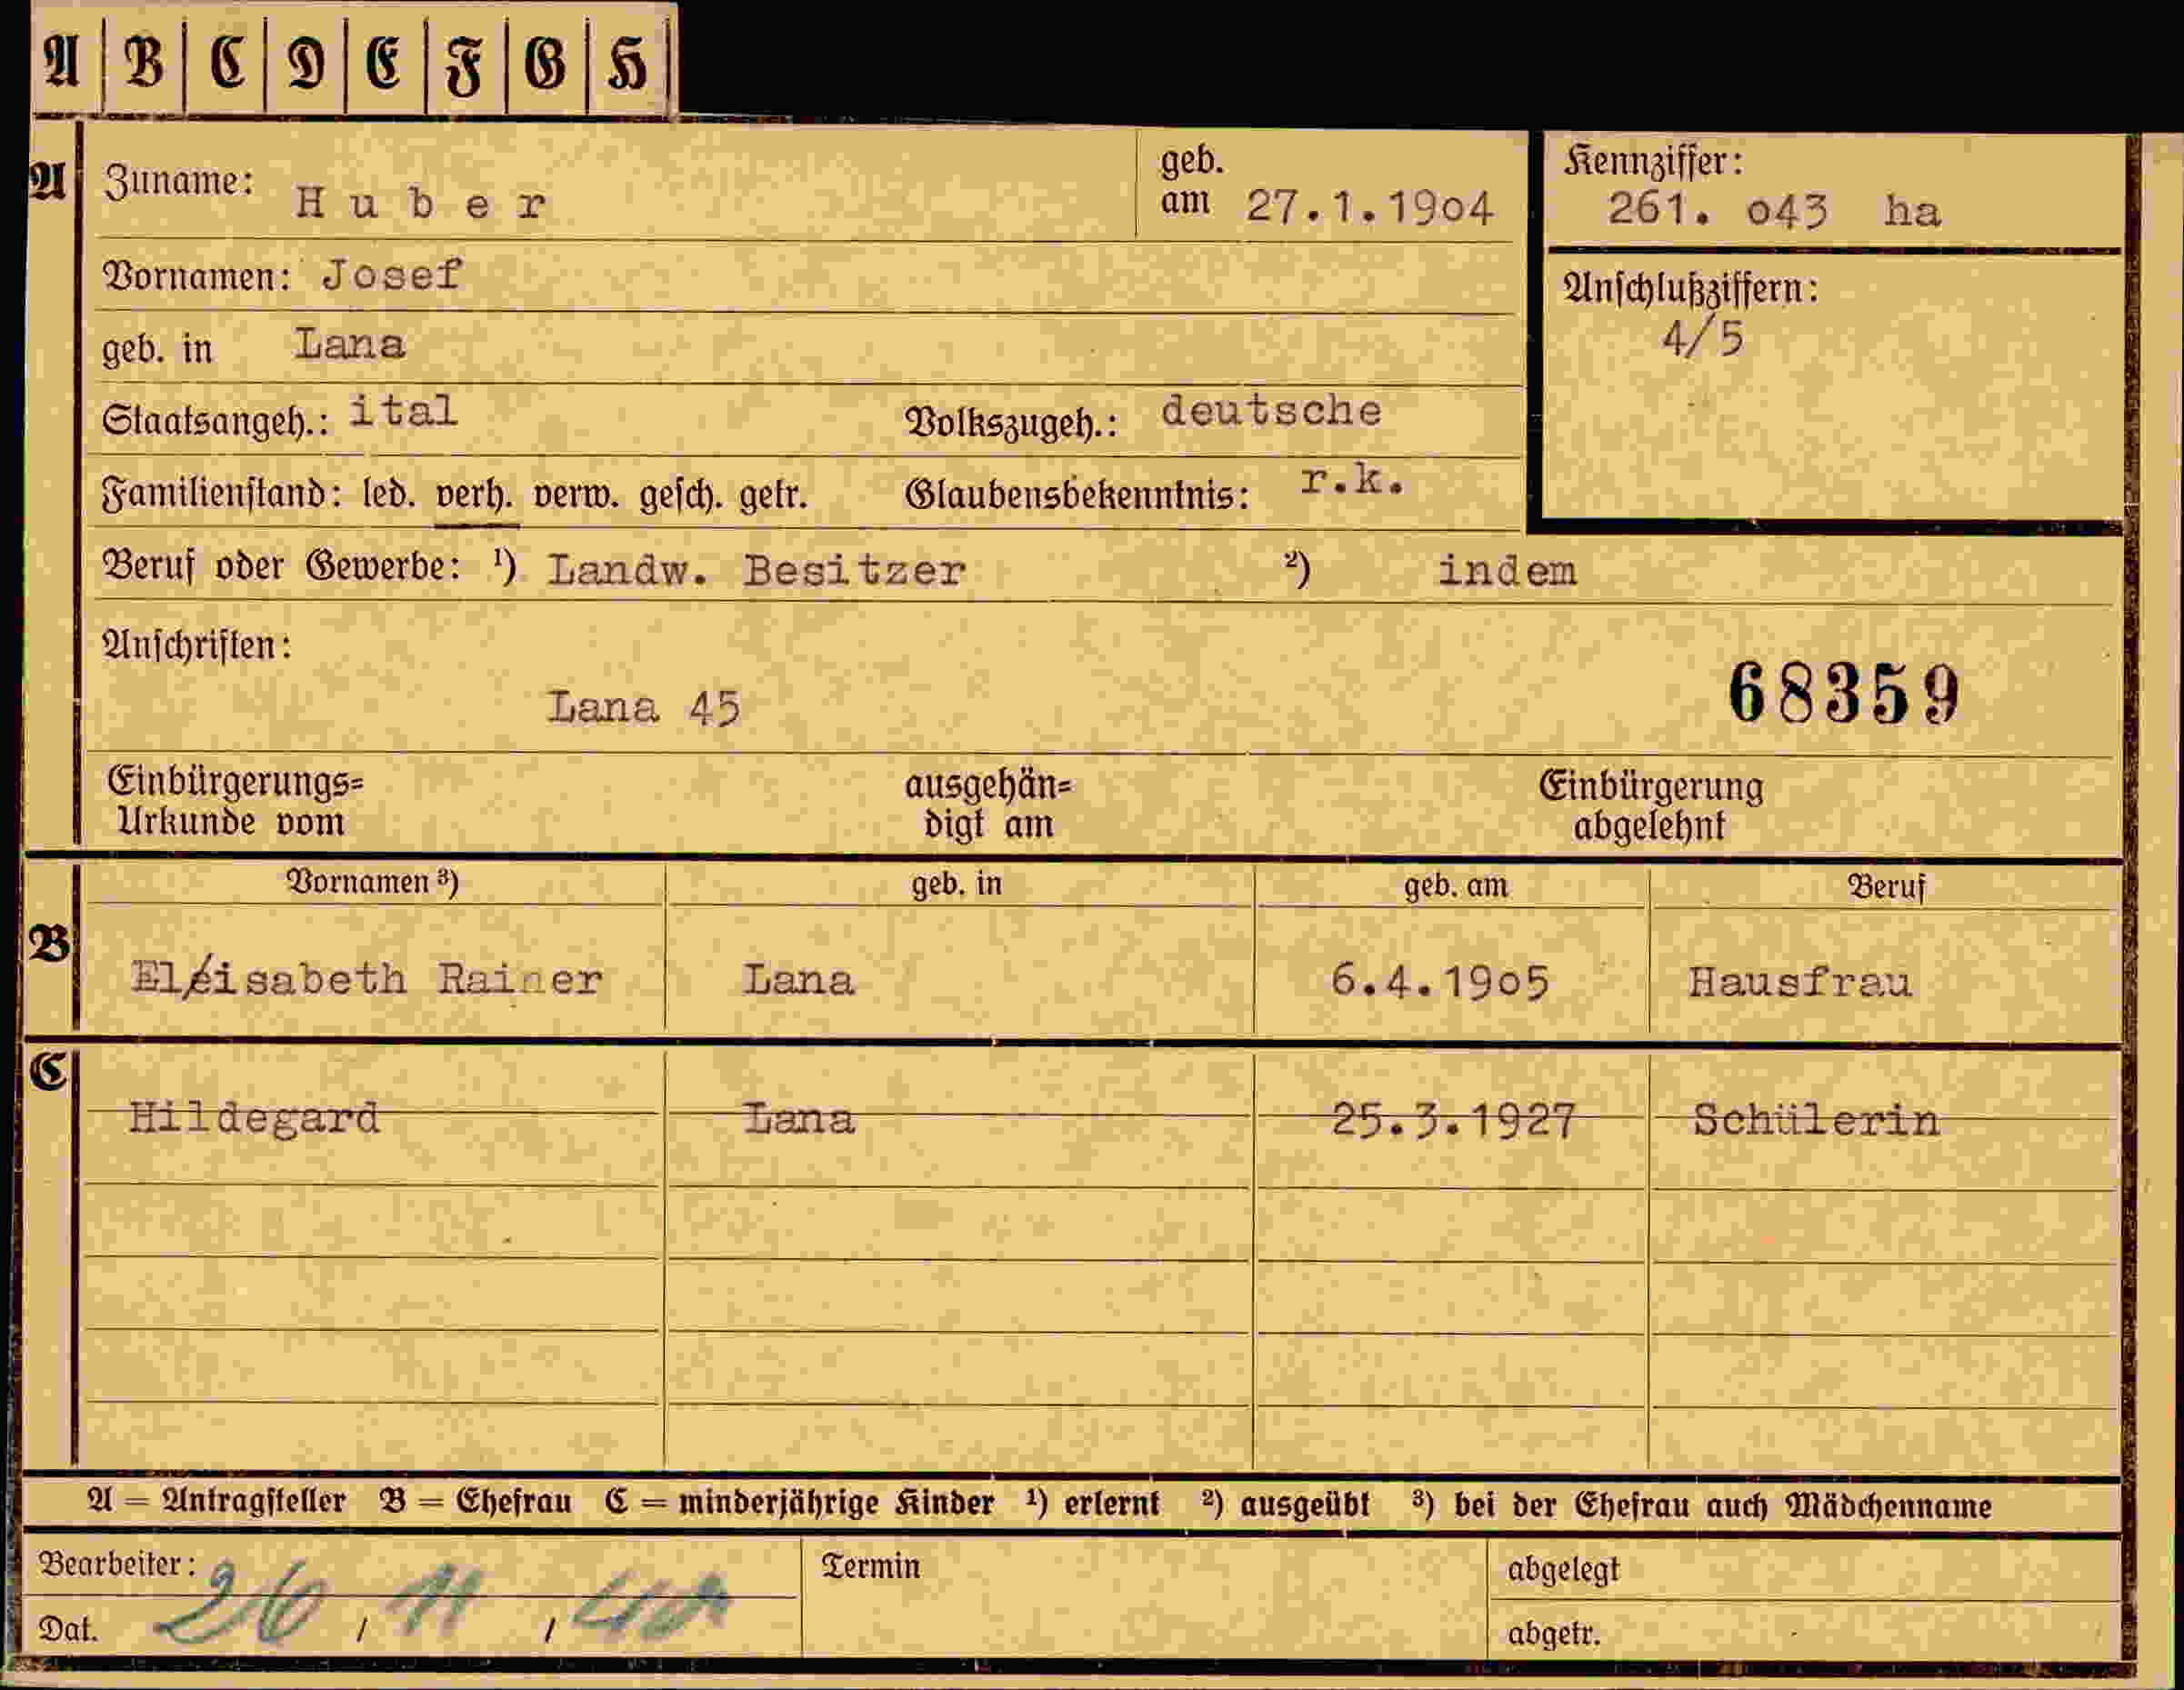 A B C D E F G H
A Zuname: Huber geb. am 27.1.1904 Kennziffer: 261. 043 ha
Vornamen: Josef Anschlußziffern: 4/5
geb. in Lana
Staatsangeh.: ital Volkszugeh.: deutsche
Familienstand: led. verh. verw. gesch. getr. Glaubensbekenntnis: r.k.
Beruf oder Gewerbe: ¹) Landw. Besitzer ²) indem
Anschriften:
Lana 45 68359
Einbürgerungs= ausgehän= Einbürgerung
Urkunde vom digt am abgelehnt
Vornamen ³) geb. in geb. am Beruf
B Elisabeth Rainer Lana 6.4.1905 Hausfrau
C Hildegard Lana 25.3.1927 Schülerin
A = Antragsteller B = Ehefrau C = minderjährige Kinder ¹) erlernt ²) ausgeübt ³) bei der Ehefrau auch Mädchenname
Bearbeiter: Termin abgelegt
Dat. 26 / 11 / 40 abgetr.